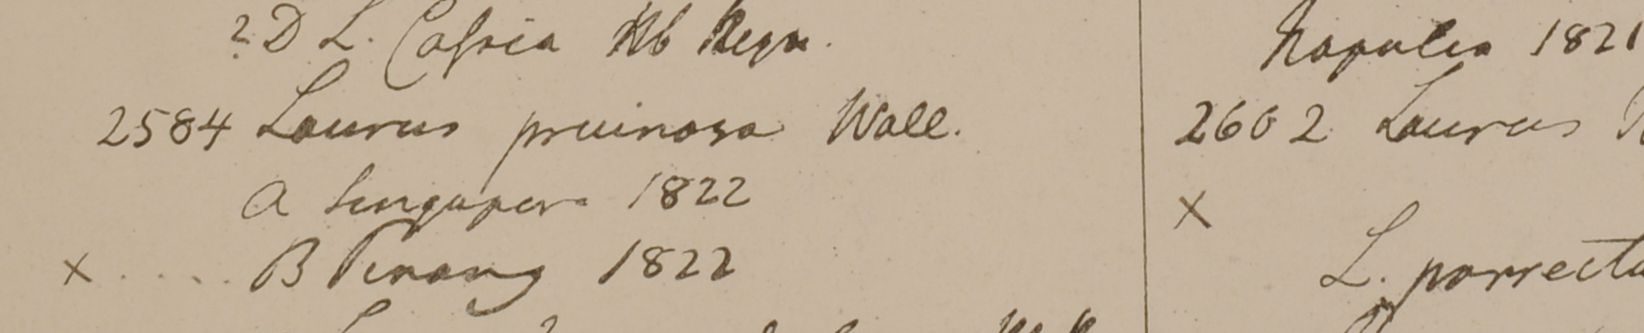 ? D L. Cassia Hb Regn.
2584 Laurus pruinosa Wall.
a Singapore 1822
x .... B Penang 1822
Napalia 1821
2602 Laurus
x
L. porrecta